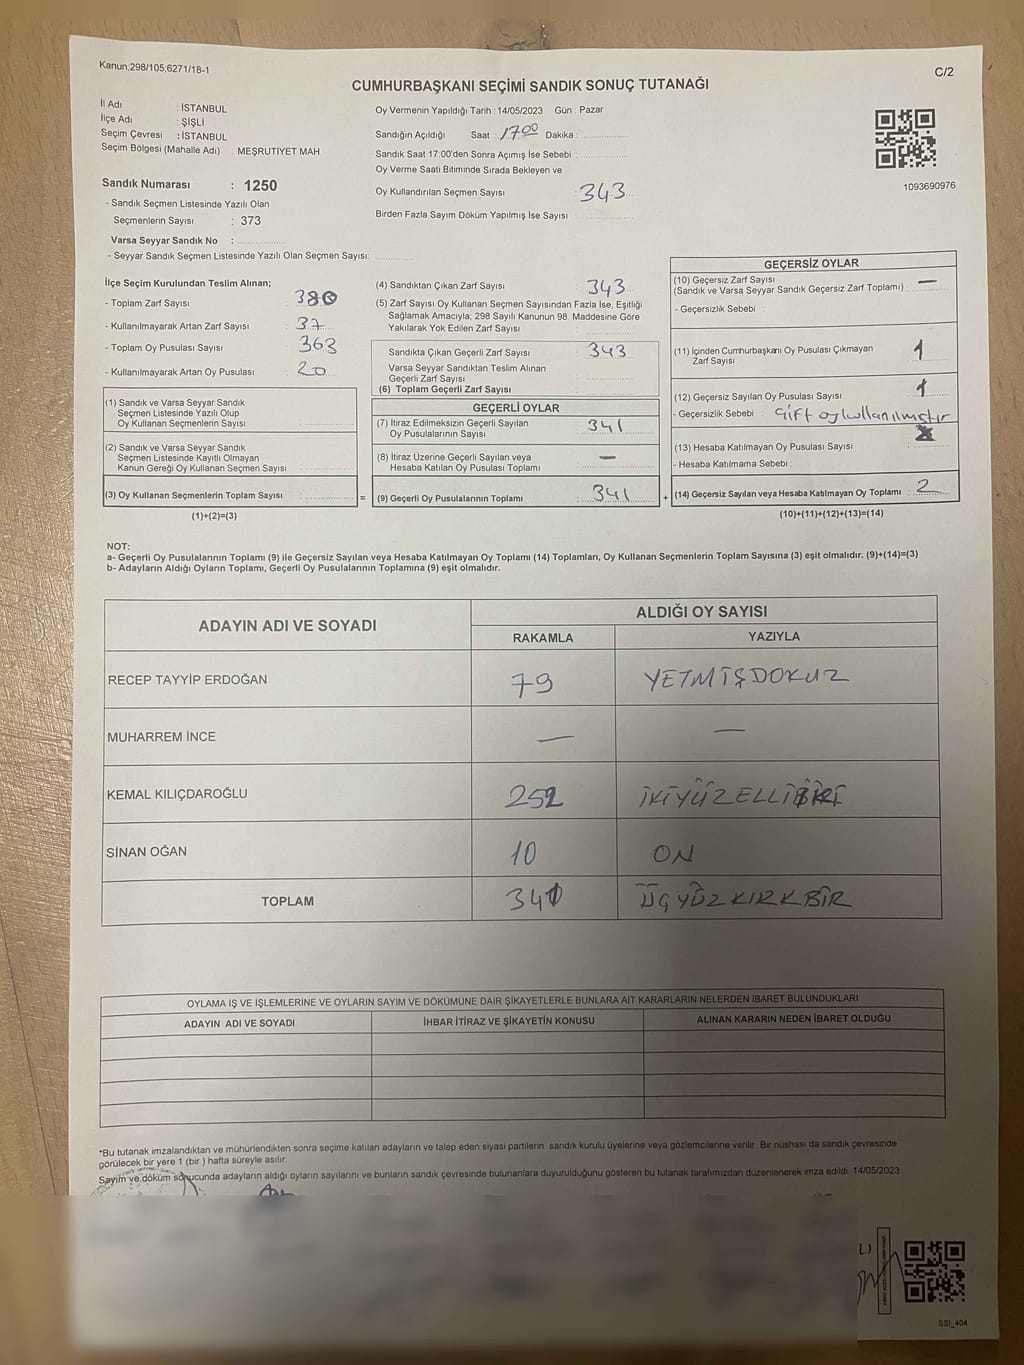 Kanun;298/105;6271/18-1
C/2
CUMHURBAŞKANI SEÇİMİ SANDIK SONUÇ TUTANAĞI
İl Adı : İSTANBUL
İlçe Adı : ŞİŞLİ
Seçim Çevresi : İSTANBUL
Seçim Bölgesi (Mahalle Adı) : MEŞRUTİYET MAH
Sandık Numarası : 1250
- Sandık Seçmen Listesinde Yazılı Olan
Seçmenlerin Sayısı : 373
Varsa Seyyar Sandık No :
- Seyyar Sandık Seçmen Listesinde Yazılı Olan Seçmen Sayısı:
Oy Vermenin Yapıldığı Tarih : 14/05/2023 Gün : Pazar
Sandığın Açıldığı Saat : 17 00 Dakika :
Sandık Saat 17:00'den Sonra Açımış İse Sebebi :
Oy Verme Saati Bitiminde Sırada Bekleyen ve
Oy Kullandırılan Seçmen Sayısı : 343
Birden Fazla Sayım Döküm Yapılmış İse Sayısı :
1093690976
İlçe Seçim Kurulundan Teslim Alınan;
- Toplam Zarf Sayısı : 380
- Kullanılmayarak Artan Zarf Sayısı : 37
- Toplam Oy Pusulası Sayısı : 363
- Kullanılmayarak Artan Oy Pusulası : 20
(1) Sandık ve Varsa Seyyar Sandık
Seçmen Listesinde Yazılı Olup
Oy Kullanan Seçmenlerin Sayısı :
(2) Sandık ve Varsa Seyyar Sandık
Seçmen Listesinde Kayıtlı Olmayan
Kanun Gereği Oy Kullanan Seçmen Sayısı :
(3) Oy Kullanan Seçmenlerin Toplam Sayısı :
(1)+(2)=(3)
=
(4) Sandıktan Çıkan Zarf Sayısı : 343
(5) Zarf Sayısı Oy Kullanan Seçmen Sayısından Fazla İse, Eşitliği
Sağlamak Amacıyla; 298 Sayılı Kanunun 98. Maddesine Göre
Yakılarak Yok Edilen Zarf Sayısı :
Sandıkta Çıkan Geçerli Zarf Sayısı : 343
Varsa Seyyar Sandıktan Teslim Alınan
Geçerli Zarf Sayısı :
(6) Toplam Geçerli Zarf Sayısı :
GEÇERLİ OYLAR
(7) İtiraz Edilmeksizin Geçerli Sayılan
Oy Pusulalarının Sayısı : 341
(8) İtiraz Üzerine Geçerli Sayılan veya
Hesaba Katılan Oy Pusulası Toplamı : —
(9) Geçerli Oy Pusulalarının Toplamı : 341
+
GEÇERSİZ OYLAR
(10) Geçersiz Zarf Sayısı
(Sandık ve Varsa Seyyar Sandık Geçersiz Zarf Toplamı) : —
- Geçersizlik Sebebi :
(11) İçinden Cumhurbaşkanı Oy Pusulası Çıkmayan
Zarf Sayısı : 1
(12) Geçersiz Sayılan Oy Pusulası Sayısı : 1
- Geçersizlik Sebebi : çift oy kullanılmıştır
(13) Hesaba Katılmayan Oy Pusulası Sayısı :
- Hesaba Katılmama Sebebi :
(14) Geçersiz Sayılan veya Hesaba Katılmayan Oy Toplamı : 2
(10)+(11)+(12)+(13)=(14)
NOT:
a- Geçerli Oy Pusulalarının Toplamı (9) ile Geçersiz Sayılan veya Hesaba Katılmayan Oy Toplamı (14) Toplamları, Oy Kullanan Seçmenlerin Toplam Sayısına (3) eşit olmalıdır. (9)+(14)=(3)
b- Adayların Aldığı Oyların Toplamı, Geçerli Oy Pusulalarının Toplamına (9) eşit olmalıdır.
ADAYIN ADI VE SOYADI
ALDIĞI OY SAYISI
RAKAMLA YAZIYLA
RECEP TAYYİP ERDOĞAN 79 YETMİŞDOKUZ
MUHARREM İNCE — —
KEMAL KILIÇDAROĞLU 252 İKİYÜZELLİ
SİNAN OĞAN 10 ON
TOPLAM 341 ÜÇYÜZKIRKBİR
OYLAMA İŞ VE İŞLEMLERİNE VE OYLARIN SAYIM VE DÖKÜMÜNE DAİR ŞİKAYETLERLE BUNLARA AİT KARARLARIN NELERDEN İBARET BULUNDUKLARI
ADAYIN ADI VE SOYADI İHBAR İTİRAZ VE ŞİKAYETİN KONUSU ALINAN KARARIN NEDEN İBARET OLDUĞU
*Bu tutanak imzalandıktan ve mühürlendikten sonra seçime katılan adayların ve talep eden siyasi partilerin sandık kurulu üyelerine veya gözlemcilerine verilir. Bir nüshası da sandık çevresinde
görülecek bir yere 1 (bir ) hafta süreyle asılır.
Sayım ve döküm sonucunda adayların aldığı oyların sayılarını ve bunların sandık çevresinde bulunanlara duyurulduğunu gösteren bu tutanak tarafımızdan düzenlenerek imza edildi. 14/05/2023
SSI_404